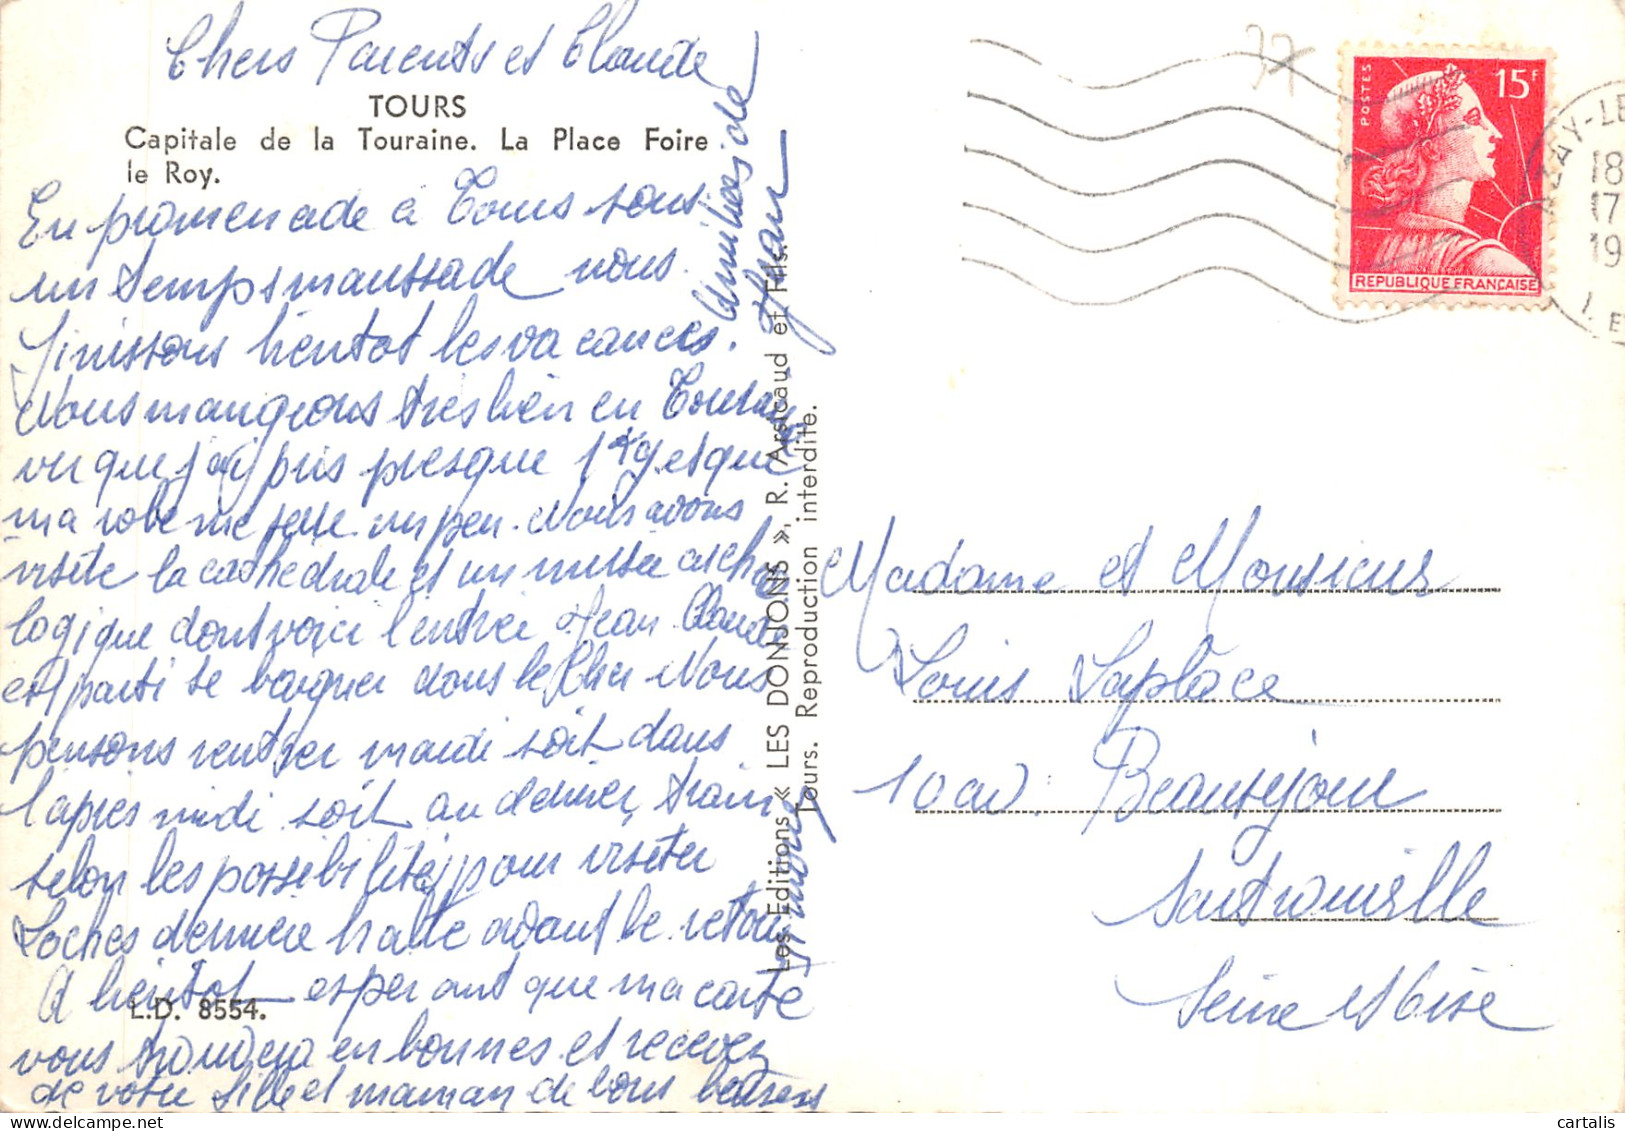 Chers Parents et Claude
TOURS
Capitale de la Touraine. La Place Foire
le Roy.
En promenade à Tours sous
un temps maussade nous
finissons bientot les vacances.
Nous mangeons très bien en Touraine
vu que j'ai pris presque 1 kg et que
ma robe me serre un peu. Nous avons
visité la cathédrale et un musée archéo
logique dont voici l'entrée Jean Claude
est parti se baigner dans le Cher Nous
pensons rentrer mardi soit dans
l'après midi soit au dernier train
selon les possibilités pour visiter
Loches dernière halte avant le retour
A bientot esperant que ma carte
L.D. 8554.
vous trouvera en bonnes et recevez
de votre fille et maman de bons baisers
Simone
Amities de
Jean
Les Editions « LES DONJONS », R. Arsicaud et Fils.
Tours. Reproduction interdite.
37
POSTES
15F
REPUBLIQUE FRANÇAISE
AY-LE
18
17
19
I. E
Madame et Monsieur
Louis Laplace
10 av. Beauséjour
Sartrouville
Seine et Oise
cartalis